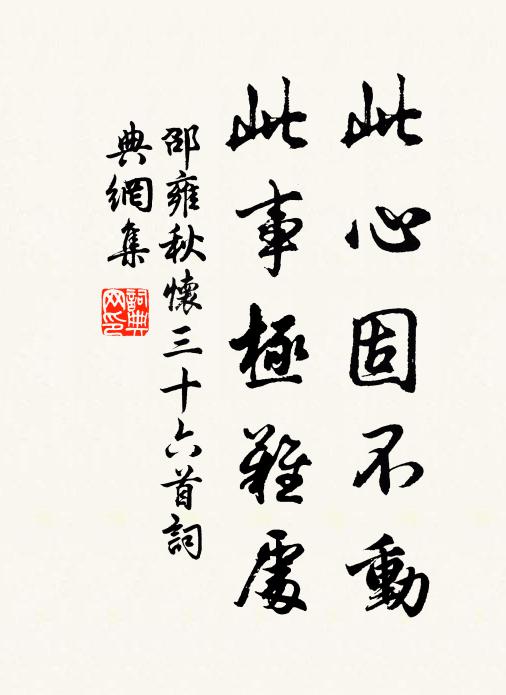 此心固不動
此事極難處
邵雍秋懷三十六首詞
典網集
詞典
网印